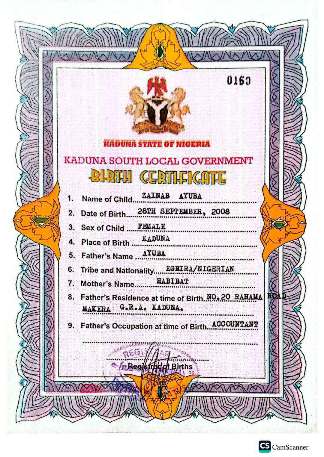 0160
KADUNA STATE OF NIGERIA
KADUNA SOUTH LOCAL GOVERNMENT
BIRTH CERTIFICATE
1. Name of Child ZAINAB AYUBA
2. Date of Birth 26TH SEPTEMBER, 2008
3. Sex of Child FEMALE
4. Place of Birth KADUNA
5. Father's Name AYUBA
6. Tribe and Nationality EGBIRA/NIGERIAN
7. Mother's Name HABIBAT
8. Father's Residence at time of Birth NO.20 BAHAMA ROAD
MAKERA G.R.A. KADUNA.
9. Father's Occupation at time of Birth ACCOUNTANT
Registrar of Births
CS CamScanner